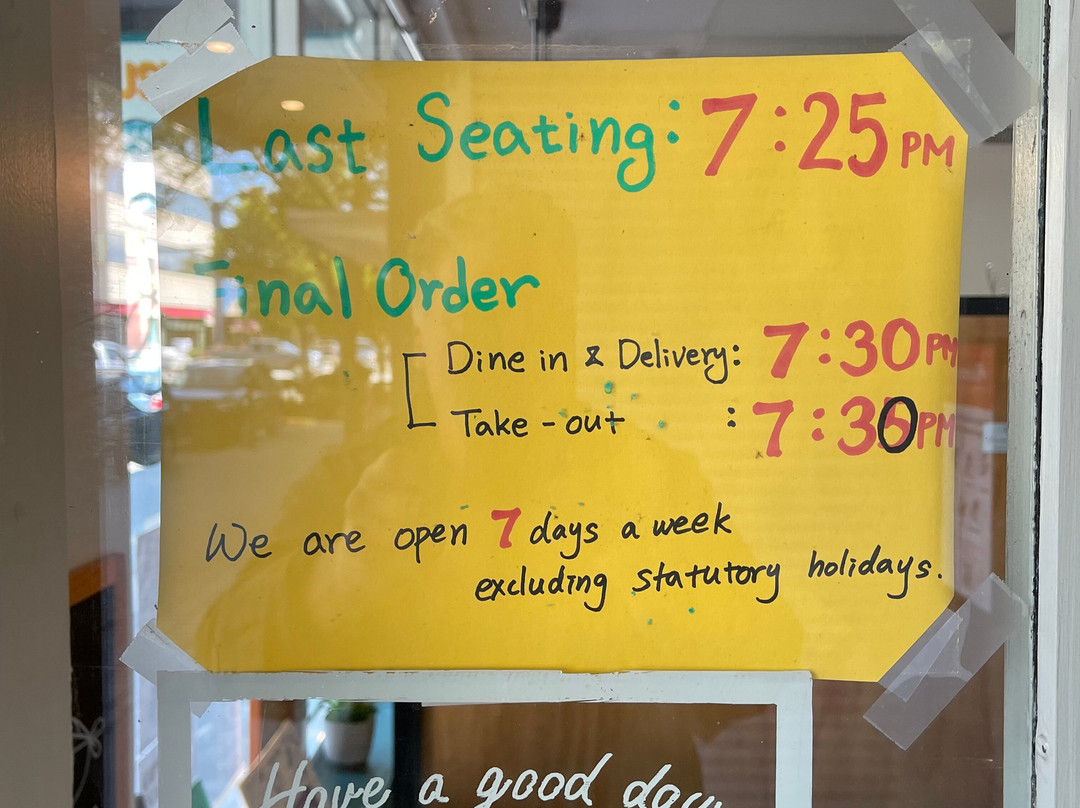 Last Seating: 7:25 PM
Final Order
Dine in & Delivery: 7:30 PM
Take-out : 7:30 PM
We are open 7 days a week
excluding statutory holidays.
Have a good day